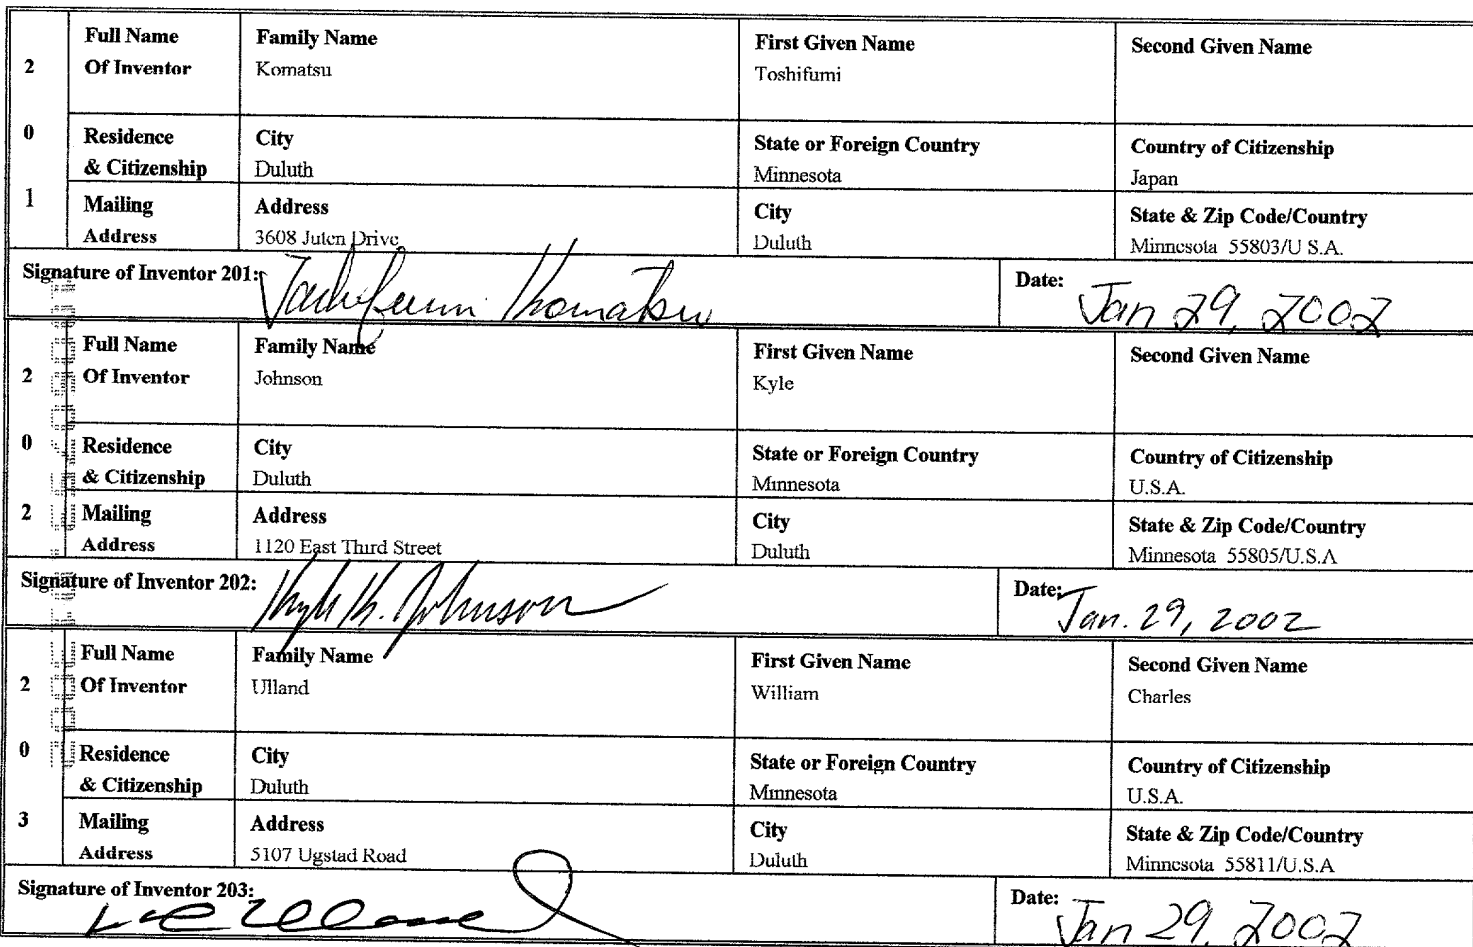 2 0 1
Full Name Of Inventor
Family Name
Komatsu
First Given Name
Toshifumi
Second Given Name
Residence & Citizenship
City
Duluth
State or Foreign Country
Minnesota
Country of Citizenship
Japan
Mailing Address
Address
3608 Juten Drive
City
Duluth
State & Zip Code/Country
Minnesota 55803/U S.A.
Signature of Inventor 201: Toshifumi Komatsu
Date: Jan 29, 2002
2 0 2
Full Name Of Inventor
Family Name
Johnson
First Given Name
Kyle
Second Given Name
Residence & Citizenship
City
Duluth
State or Foreign Country
Minnesota
Country of Citizenship
U.S.A.
Mailing Address
Address
1120 East Third Street
City
Duluth
State & Zip Code/Country
Minnesota 55805/U.S.A
Signature of Inventor 202: Kyle K. Johnson
Date: Jan. 29, 2002
2 0 3
Full Name Of Inventor
Family Name
Ulland
First Given Name
William
Second Given Name
Charles
Residence & Citizenship
City
Duluth
State or Foreign Country
Minnesota
Country of Citizenship
U.S.A.
Mailing Address
Address
5107 Ugstad Road
City
Duluth
State & Zip Code/Country
Minnesota 55811/U.S.A
Signature of Inventor 203: Ulland
Date: Jan 29, 2002